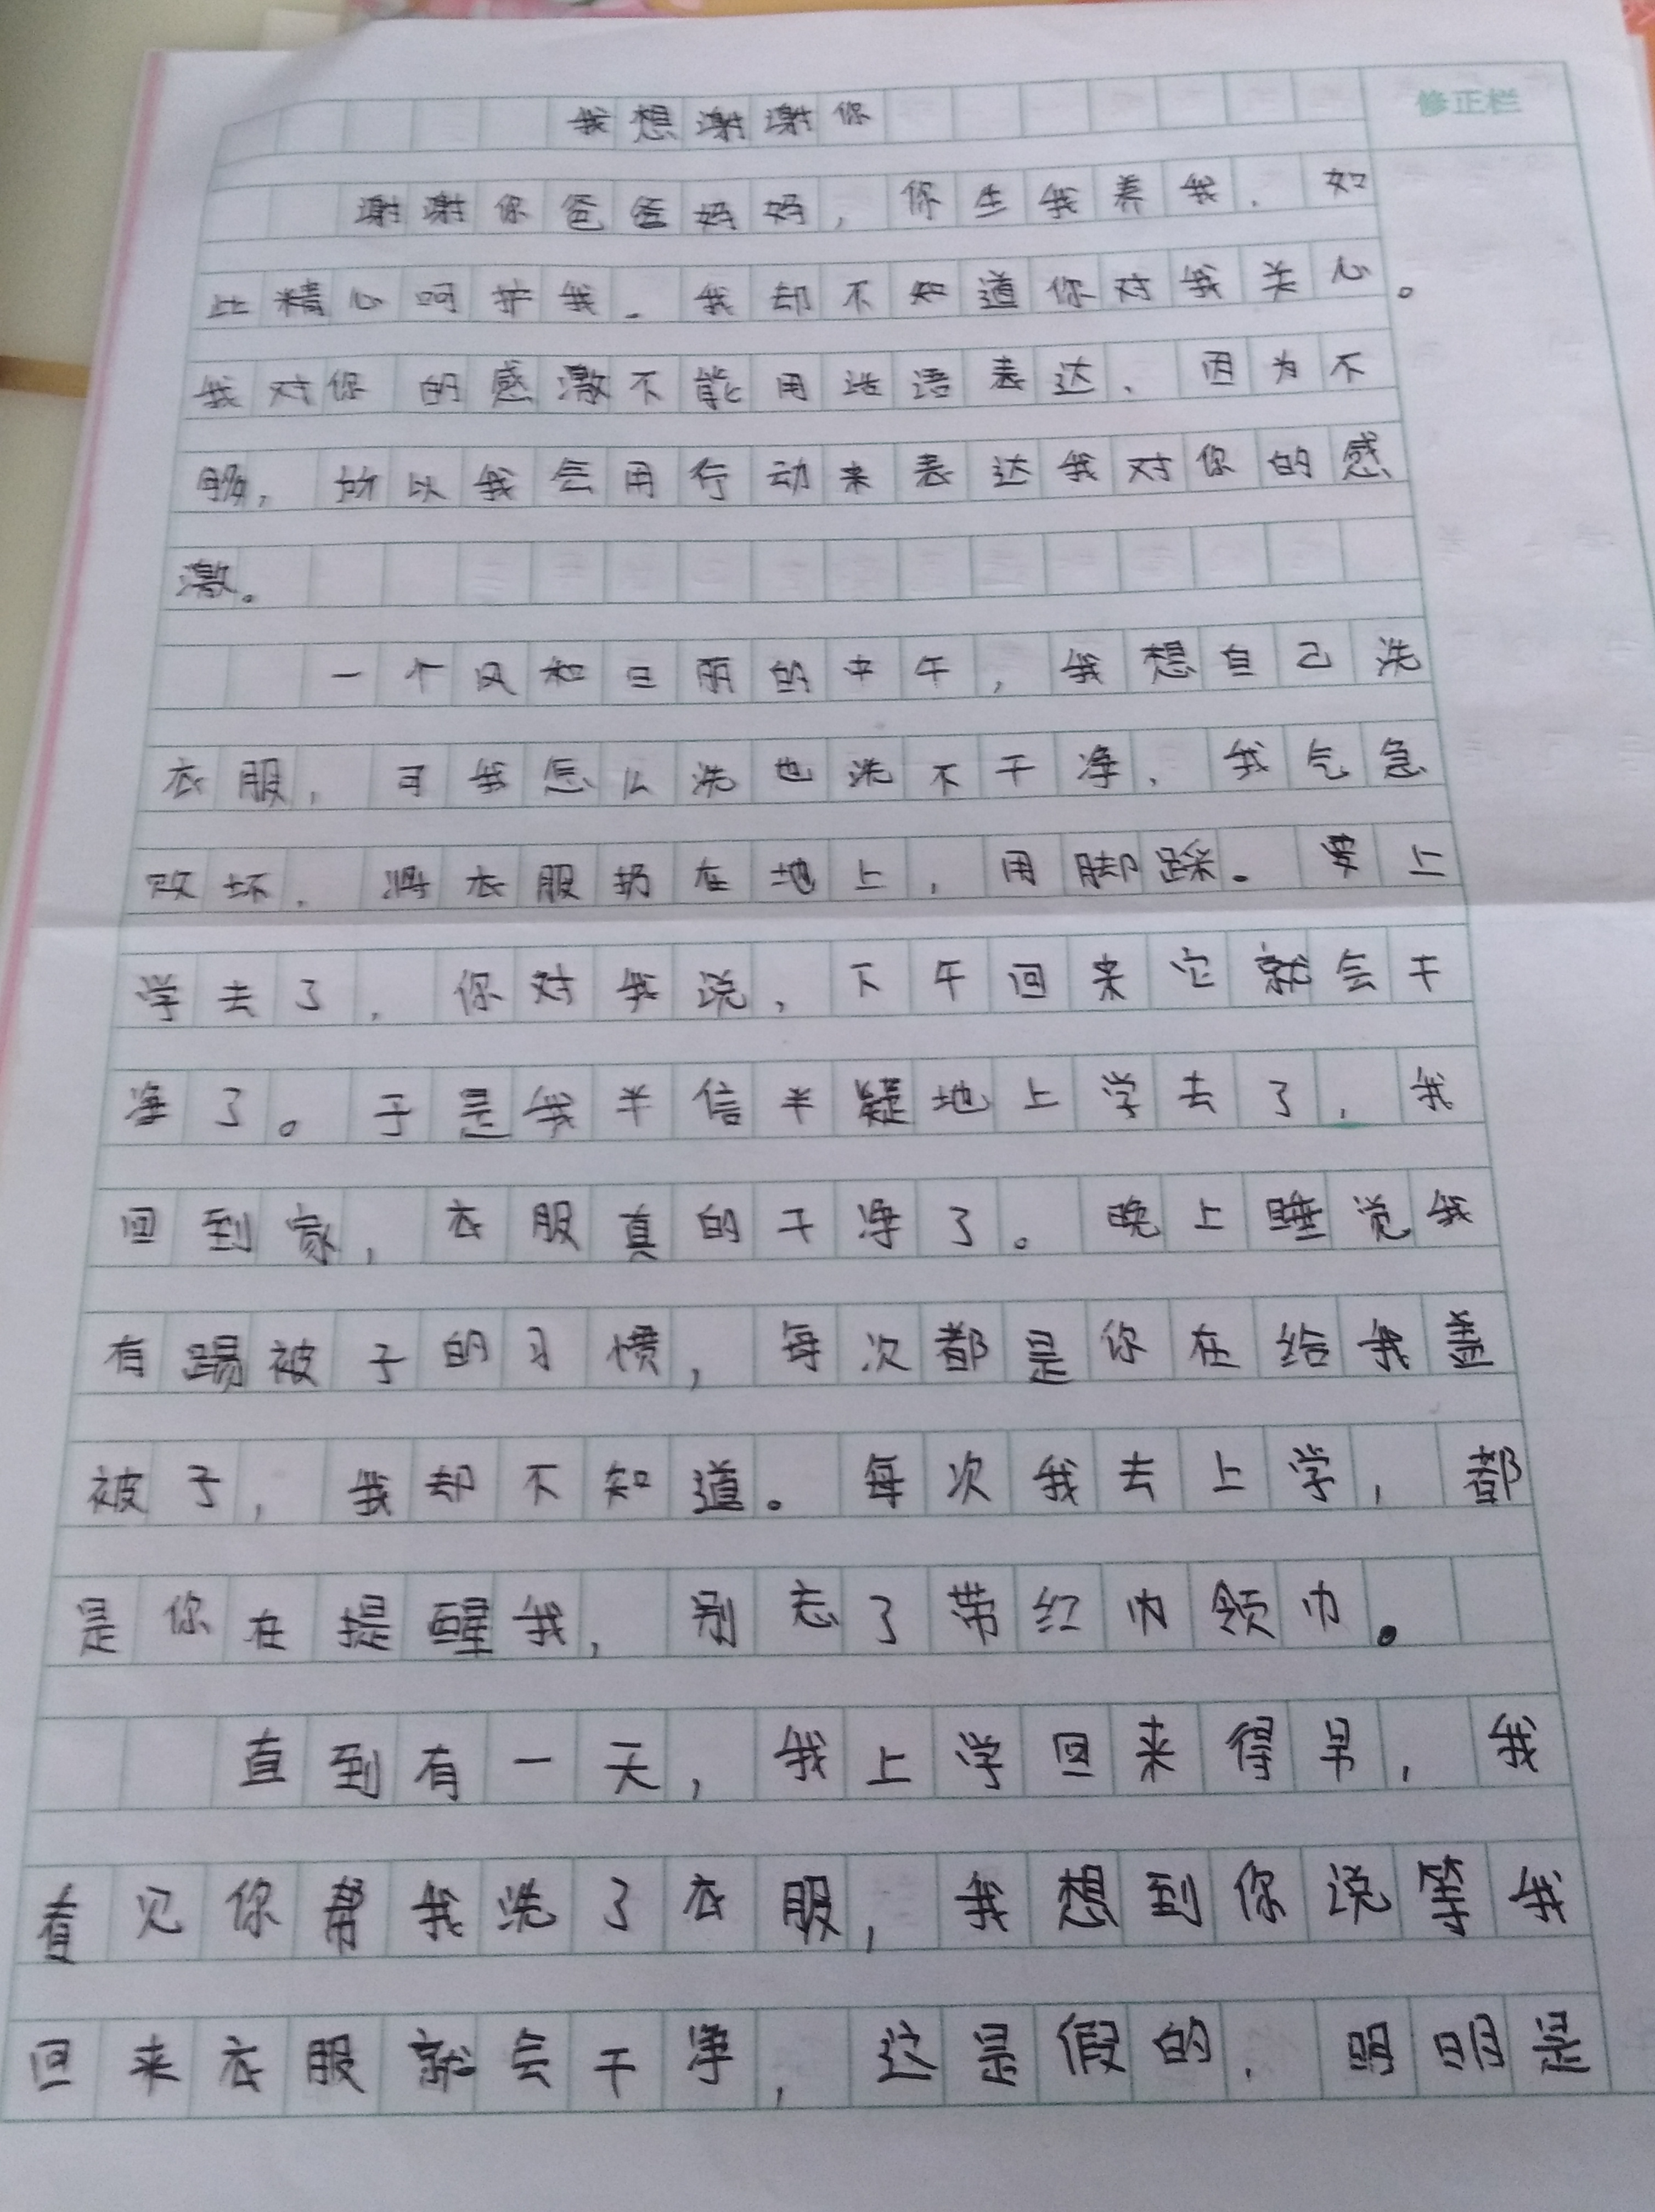 我想谢谢你
修正栏
谢谢你爸爸妈妈，你生我养我，如
此精心呵护我。我却不知道你对我关心。
我对你的感激不能用话语表达，因为不
够，所以我会用行动来表达我对你的感
激。
一个风和日丽的中午，我想自己洗
衣服，可我怎么洗也洗不干净，我气急
败坏，将衣服扔在地上，用脚踩。要上
学去了，你对我说，下午回来它就会干
净了。于是我半信半疑地上学去了，我
回到家，衣服真的干净了。晚上睡觉我
有踢被子的习惯，每次都是你在给我盖
被子，我却不知道。每次我去上学，都
是你在提醒我，别忘了带红内领巾。
直到有一天，我上学回来得早，我
看见你帮我洗了衣服，我想到你说等我
回来衣服就会干净，这是假的，明明是